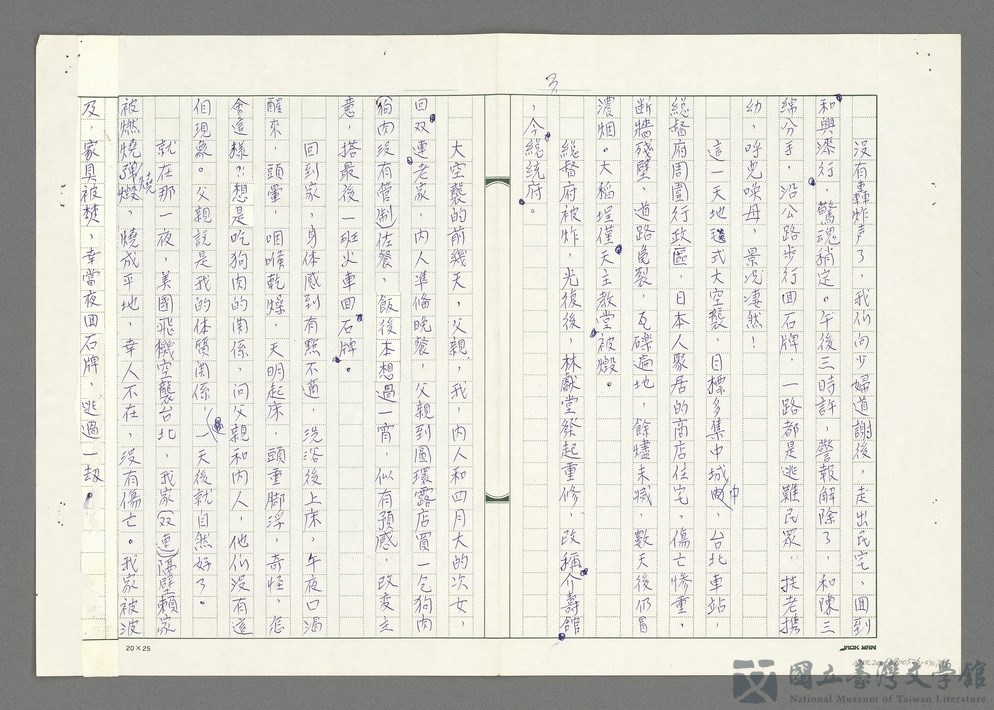 3
沒有轟炸声了，我们向少婦道謝後，走出民宅，回到
和興漆行，驚魂稍定。午後三時許，警報解除了，和陳三
綿分手，沿公路步行回石牌，一路都是逃難民眾，扶老携
幼，呼兒喚母，景況凄然！
這一天地毯式大空襲，目標多集中城中，台北車站，
総督府周圍行政區，日本人聚居的商店住宅，傷亡慘重，
断牆殘壁，道路亀裂，瓦礫遍地，餘燼未滅，數天後仍冒
濃烟。大稻埕僅天主教堂被燬。
総督府被炸，光復後，林獻堂發起重修，改稱介壽館
，今総統府。
大空襲的前幾天，父親，我，内人和四月大的次女，
回双連老家，内人準備晚餐，父親到圓環露店買一包狗肉
（狗肉没有管制）佐餐，飯後本想過一宵，似有預感，改変主
意，搭最後一班火車回石牌。
回到家，身体感到有點不適，洗浴後上床，午夜口渴
醒來，頭暈，咽喉乾燥，天明起床，頭重脚浮，奇怪，怎
會這樣？想是吃狗肉的関係，问父親和内人，他们没有這
個現象。父親說是我的体質関係，一天後就自然好了。
就在那一夜，美國飛機空襲台北，我家（双連）隔壁賴家
被燃燒彈燒燬，燒成平地，幸人不在，没有傷亡。我家被波
及，家具被焚，幸當夜回石牌，逃過一劫。
20×25
JACK MAN
國立臺灣文學館
National Museum of Taiwan Literature